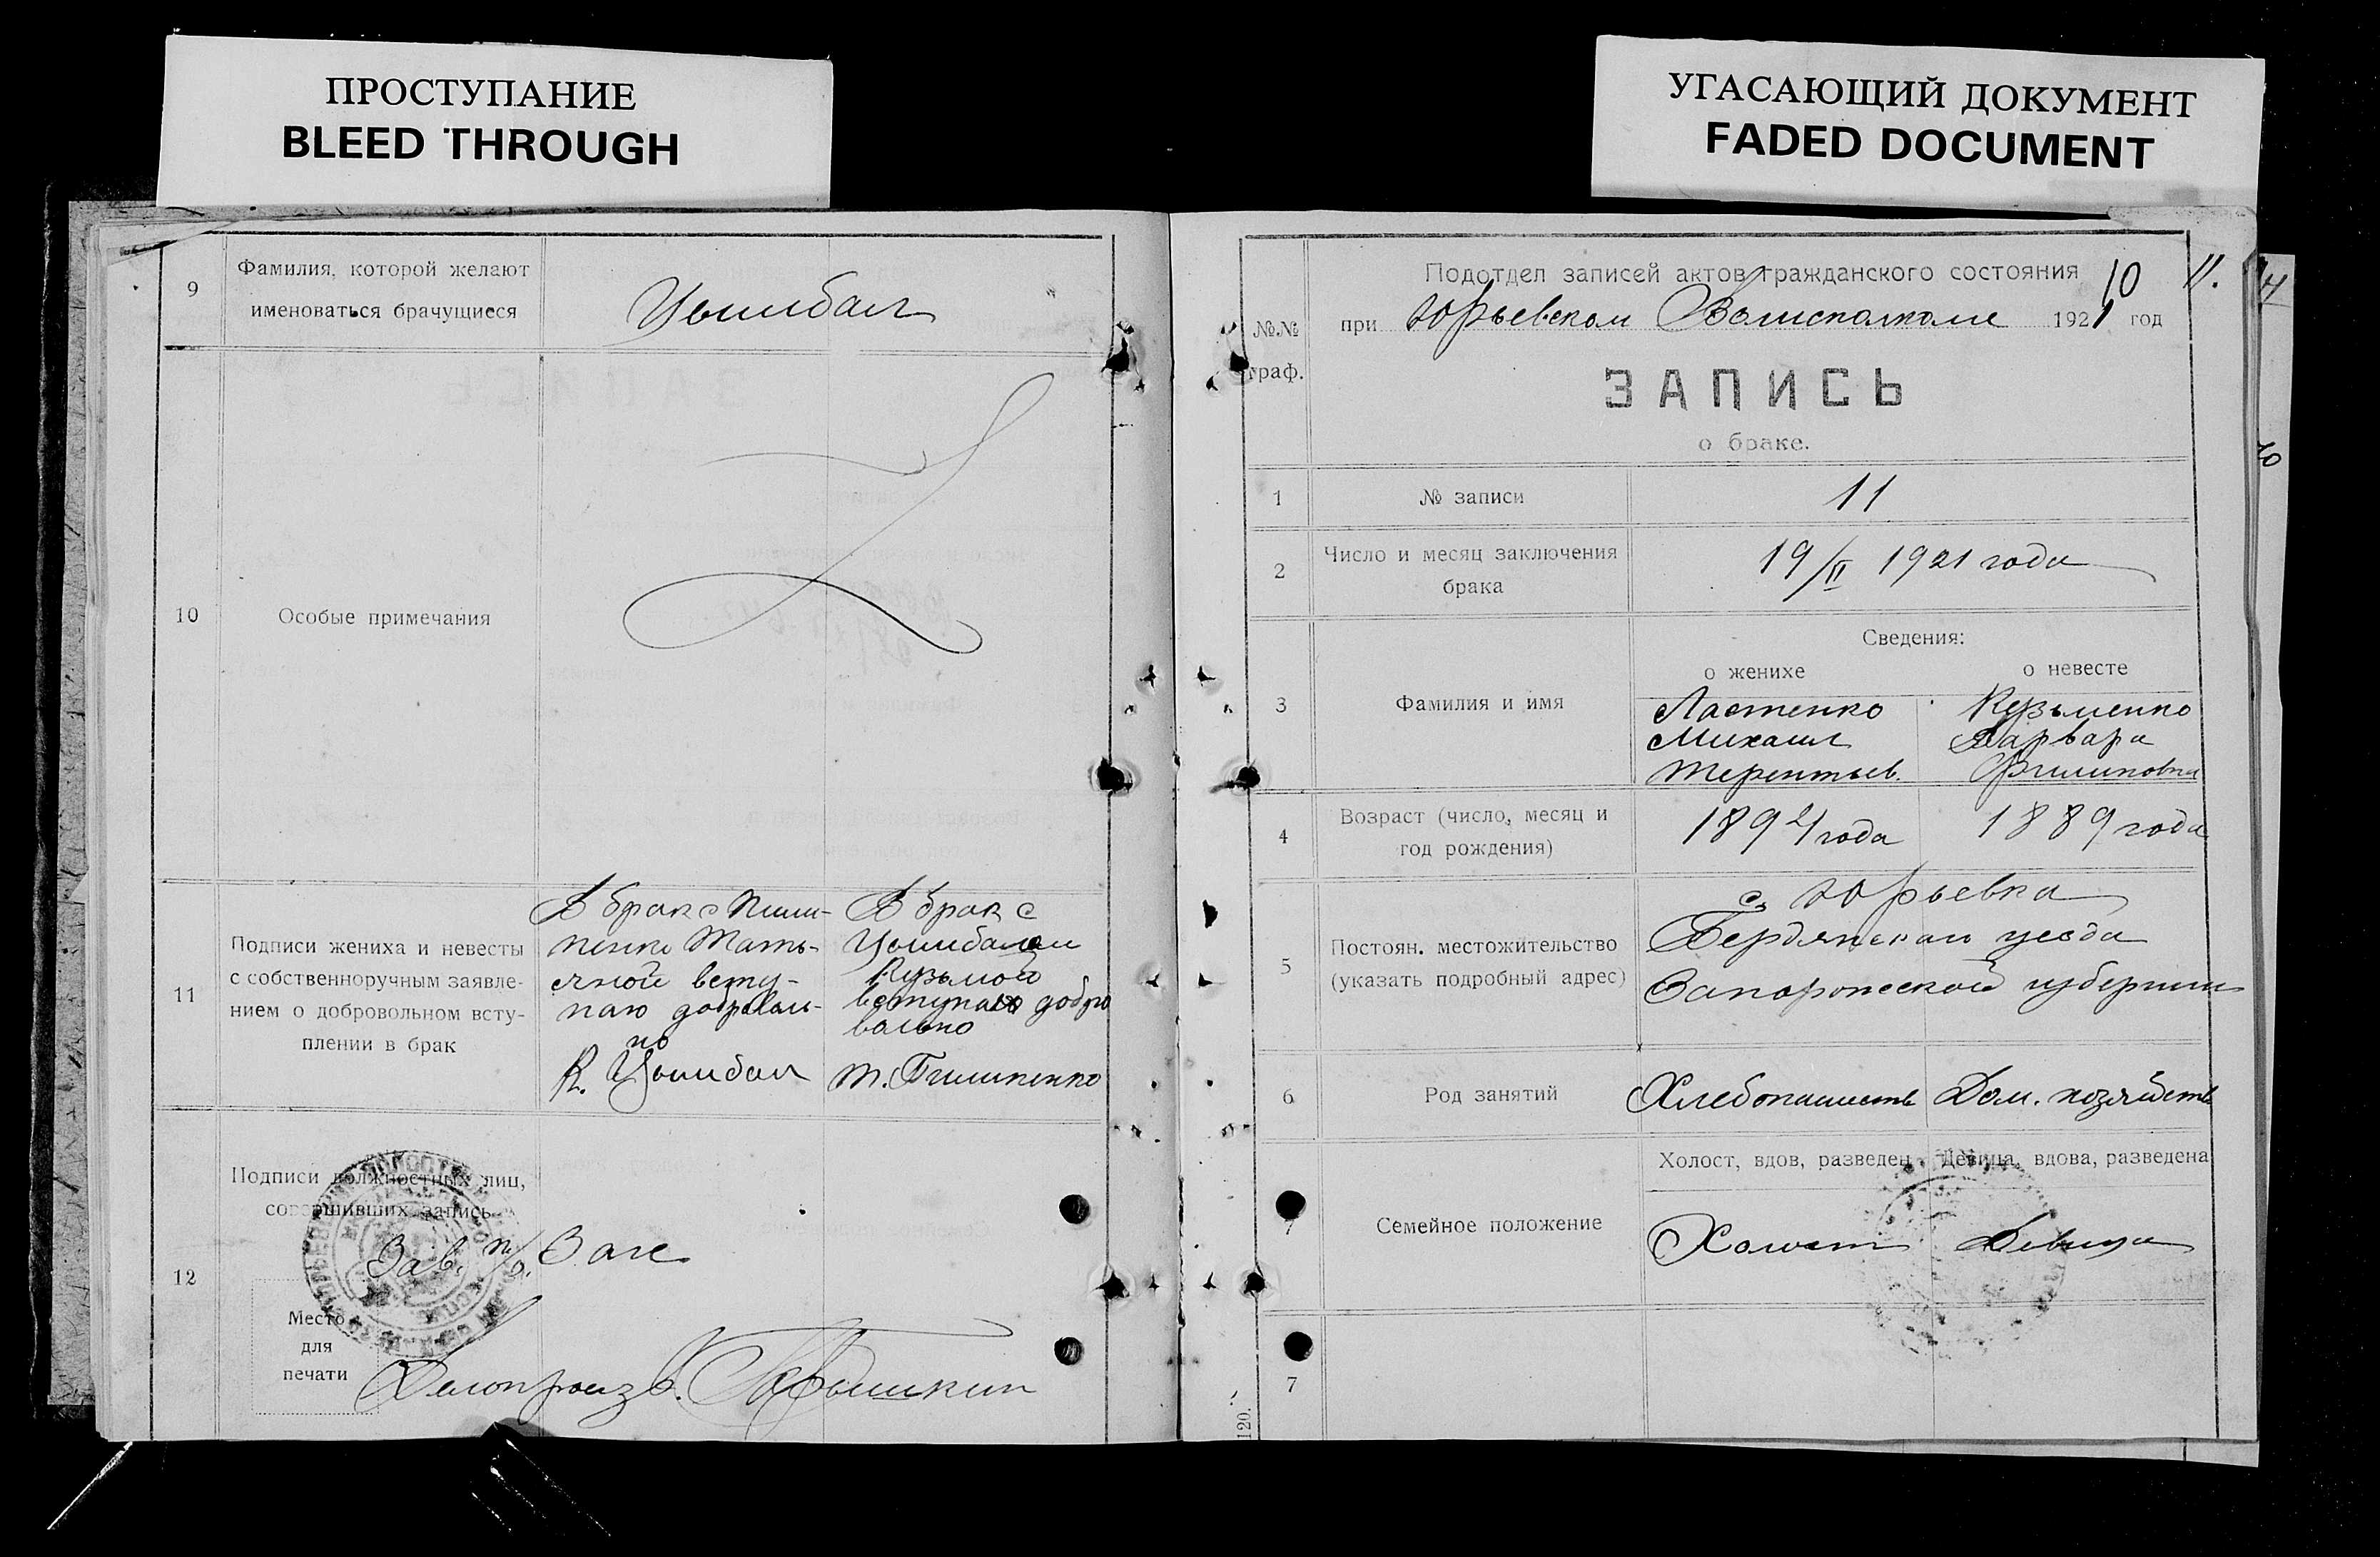 ПРОСТУПАНИЕ
BLEED THROUGH
УГАСАЮЩИЙ ДОКУМЕНТ
FADED DOCUMENT
9
Фамилия, которой желают
именоваться брачущиеся
Цымбал
10
Особые примечания
11
Подписи жениха и невесты
с собственноручным заявле-
нием о добровольном всту-
плении в брак
В брак с Пили-
пенко Тать-
яной всту-
паю доброволь-
но
К. Цымбал
В брак с
Цымбалом
Кузьмой
вступаю добро
вольно
Т. Пилипенко
12
Подписи должностных лиц,
совершивших запись
Зав. п/о. Загс
Место
для
печати
Делопроизв.
10
11.
Подотдел записей актов гражданского состояния
при Юрьевском Волисполкоме 1921 год
№№
граф.
ЗАПИСЬ
о браке.
1
№ записи
11
2
Число и месяц заключения
брака
19/II 1921 года
Сведения:
о женихе
о невесте
3
Фамилия и имя
Ластенко
Михаил
Терентьев.
Кузьменко
Варвара
Филиповна
4
Возраст (число, месяц и
год рождения)
1894 года
1889 года
5
Постоян. местожительство
(указать подробный адрес)
с. Юрьевка
Бердянскаго уезда
Запорожской губернии
6
Род занятий
Хлебопашеств
Дом. хозяйств
7
Семейное положение
Холост, вдов, разведен
Девица, вдова, разведена
Холост
Девица
7
120.